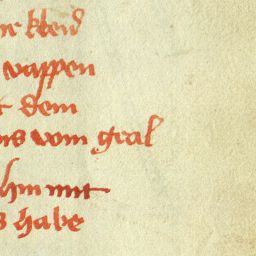 ne kleid
wappen
t dem
ns vom gral
hm mit
s habe